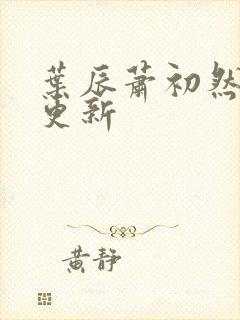 葉辰蕭初然
更新
黄靜